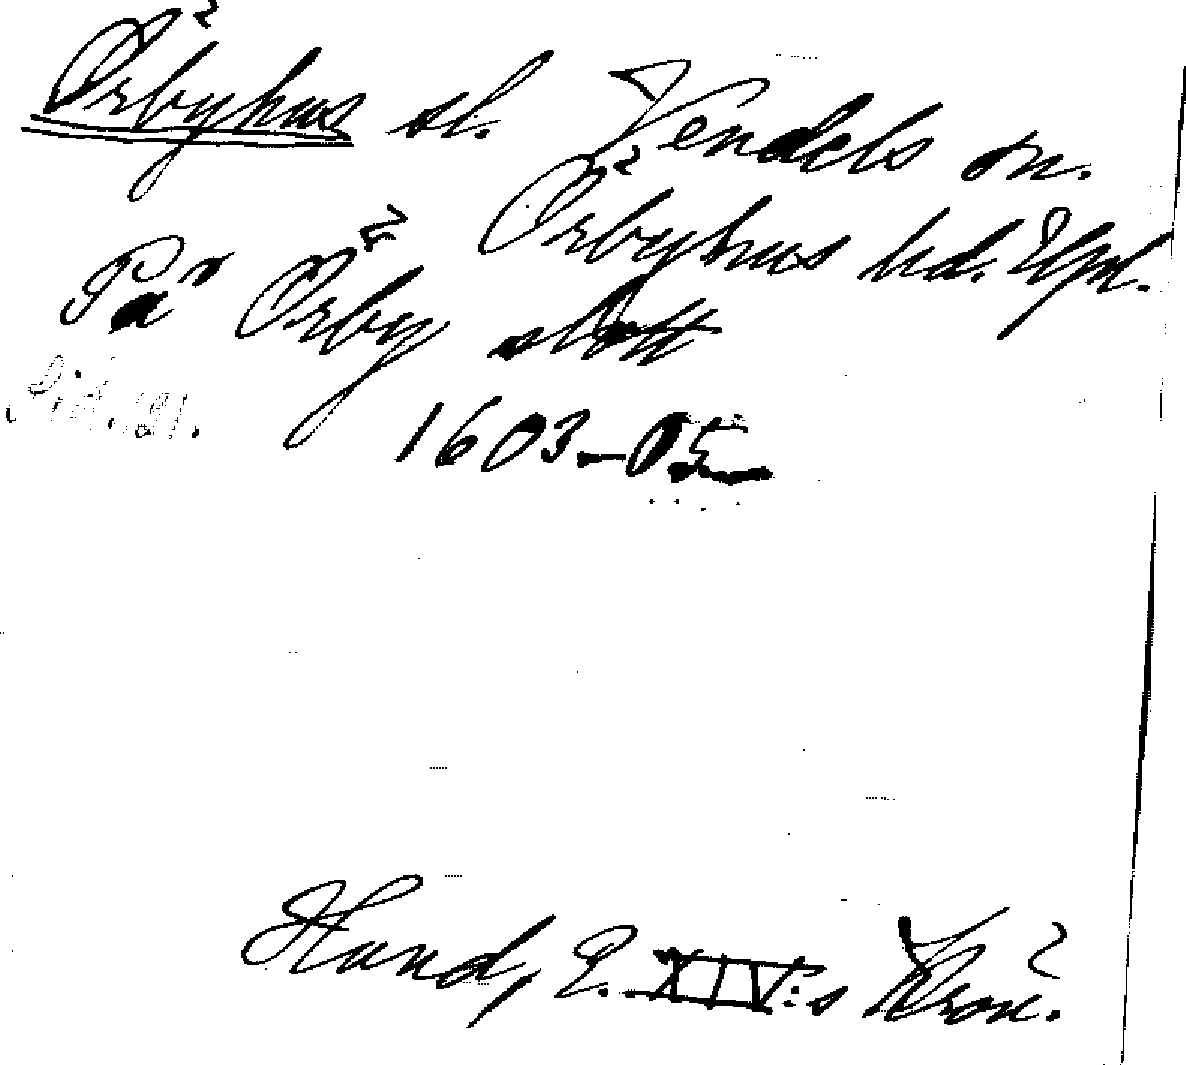 Örbyhus sl. Vendels sn.
Örbyhus hd. Upl.
På Örby slott
Sid. 191.
1603-05
Hund, E. XIV:s Krön.